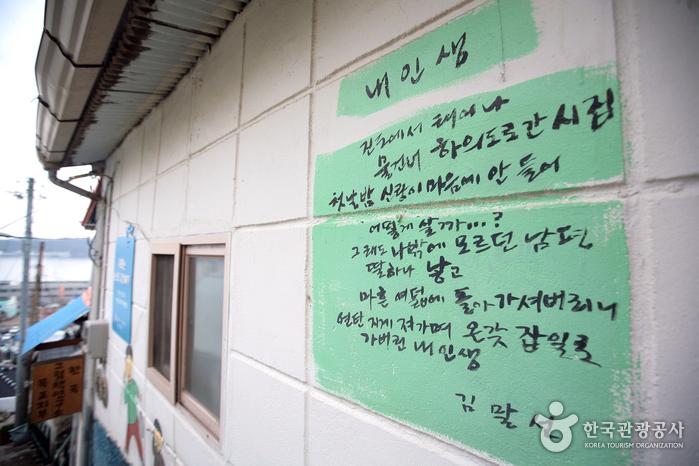 내 인생
진도에서 태어나
물건너 하의도로 간 시집
첫날밤 신랑이 마음에 안 들어
'어떻게 살까...?
그래도 나밖에 모르던 남편
딸하나 낳고
마흔 여덟에 돌아가셔버리니
연탄 지게 져가며 온갖 잡일로
가버린 내 인생
김 말 심
한국
고혈압연구소
목포지부
한국관광공사
KOREA TOURISM ORGANIZATION